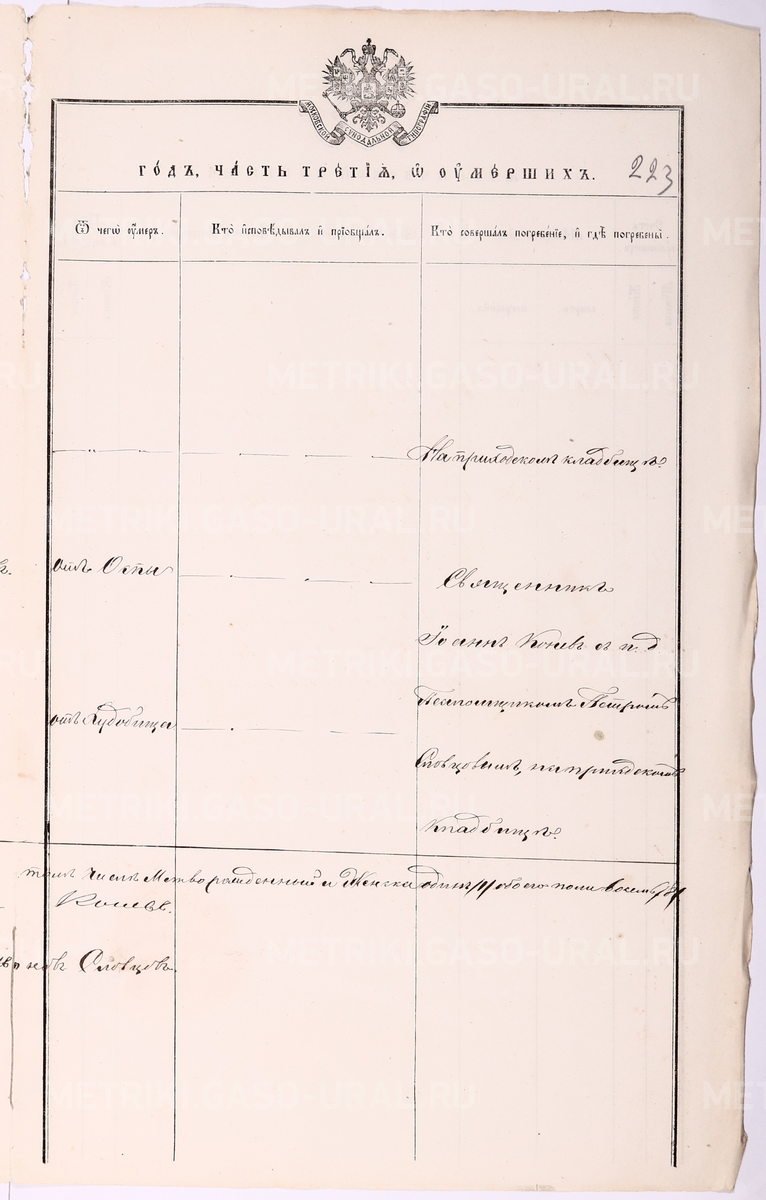 МОСКОВСКОЙ СѴНОДАЛЬНОЙ ТИПОГРАФІИ
го́дъ, ча́сть тре́тїѧ, ѡ҆ ᲂу҆ме́ршихъ.
223
Ѿ чегѡ̀ ᲂу҆́меръ.
Кто̀ и҆сповѣ́дывалъ и҆ прїѡбща́лъ.
Кто̀ соверша́лъ погребе́нїе, и҆ гдѣ̀ погребены̀.
На приходскомъ кладбищѣ.
отъ Оспы
Священникъ
Іоаннъ Коневъ съ и. д.
отъ Худобища
Псаломщикомъ Петромъ
Словцовымъ, на приходскомъ
кладбищѣ.
томъ числѣ Мертворожденный и Женска одинъ /1/ обоего пола восемь /8/
Коневъ.
Словцовъ.
METRIKI.GASO-URAL.RU